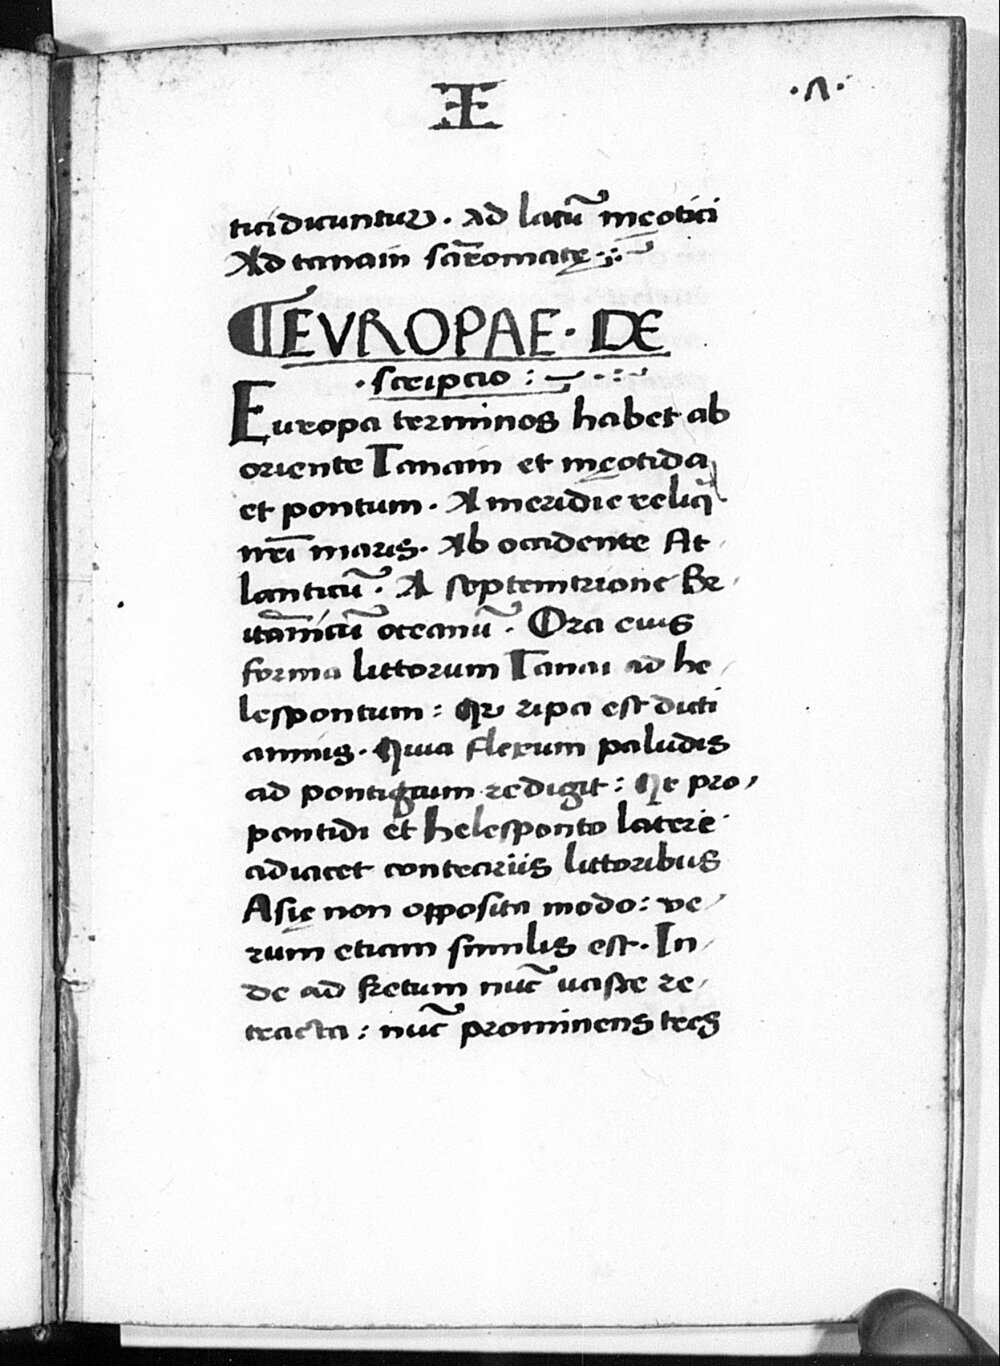 ·Λ·
ticidicuntur · ad latũ męotici
Ad tanain sãromatę
EVROPAE · DE
· scripcio :
Europa terminos habet ab
oriente Tanain et męotida
et pontum · A meridie reliq̃
nr̃i maris · Ab occidente At
lanticũ · A septemtrione Br
itãnicũ oceanũ · Ora eius
forma littorum Tanai ad he
lespontum : Qr ripa est dicti
amnis · Quia flexum paludis
ad ponticum redigit : Qe pro
pontidi et helesponto latere
adiacet contrariis littoribus
Asię non opposita modo : ve
rum etiam similis est · In
de ad fretum nũc vaste re
tracta : nũc prominens tres